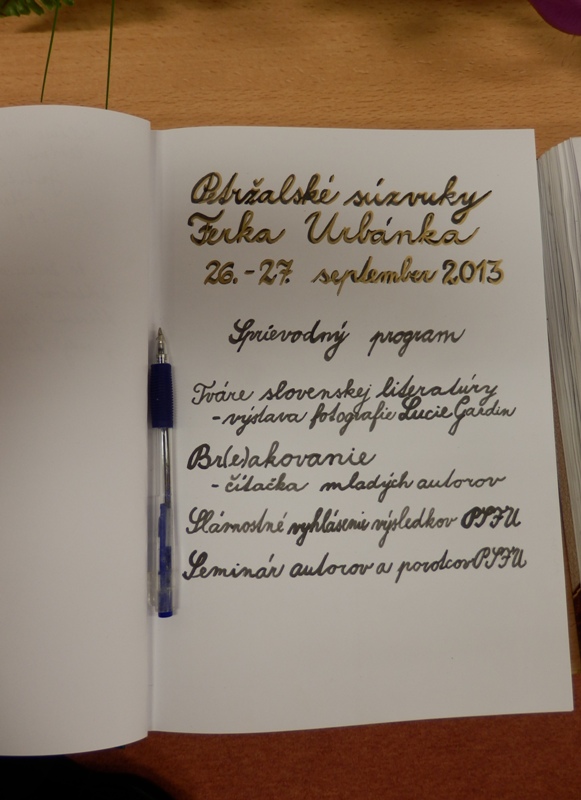 Petržalské súzvuky
Ferka Urbánka
26.-27. september 2013
Sprievodný program
Tváre slovenskej literatúry
- výstava fotografie Lucie Gardin
Br(e)akovanie
- čítačka mladých autorov
Slávnostné vyhlásenie výsledkov PSFU
Seminár autorov a porotcov PSFU